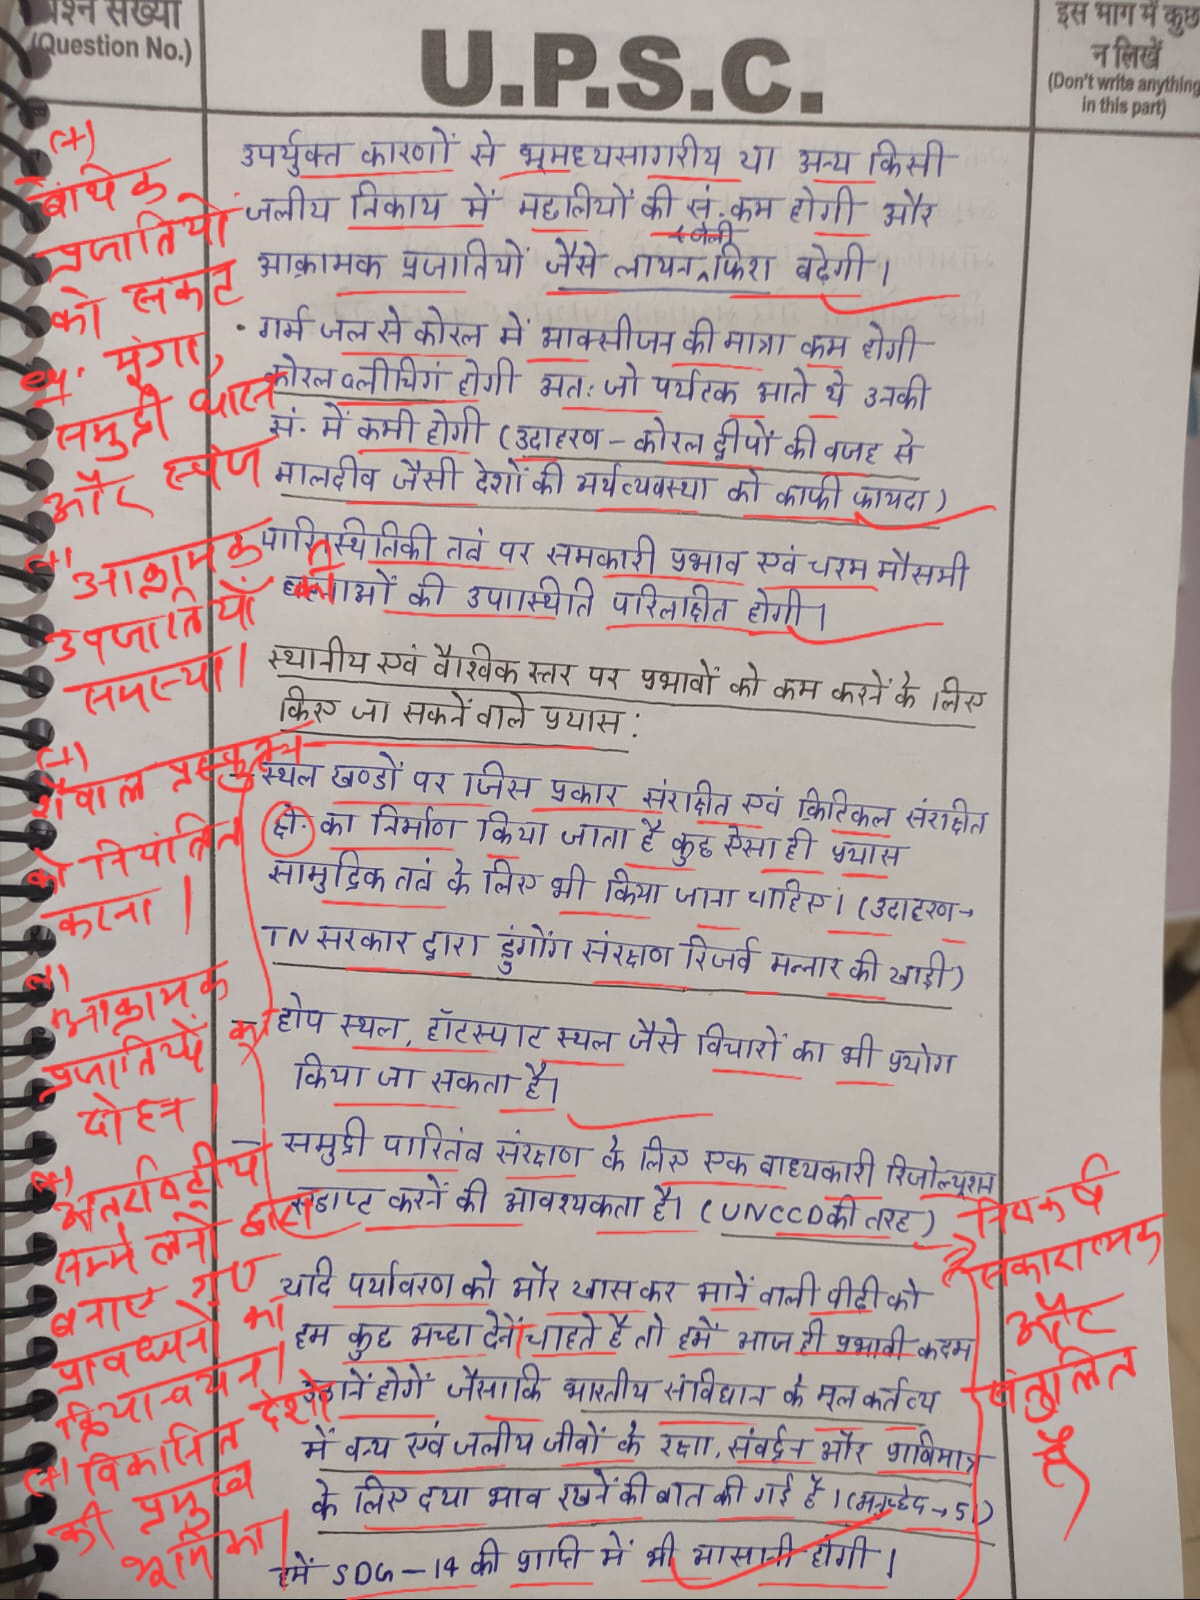 प्रश्न संख्या
(Question No.)
U.P.S.C.
इस भाग में कुछ
न लिखें
(Don't write anything
in this part)
उपर्युक्त कारणों से भूमध्यसागरीय या अन्य किसी
जलीय निकाय में मछलियों की सं. कम होगी और
जेली
आक्रामक प्रजातियों जैसे लायन फिश बढ़ेगी।
गर्म जल से कोरल में आक्सीजन की मात्रा कम होगी
कोरल ब्लीचिंग होगी अतः जो पर्यटक आते थे उनकी
सं. में कमी होगी (उदाहरण – कोरल द्वीपों की वजह से
मालदीव जैसी देशों की अर्थव्यवस्था को काफी फायदा)
पारिस्थितिकी तंत्र पर समकारी प्रभाव एवं चरम मौसमी
घटनाओं की उपस्थिति परिलक्षित होगी।
स्थानीय एवं वैश्विक स्तर पर प्रभावों को कम करनें के लिए
किए जा सकनें वाले प्रयास:
- स्थल खण्डों पर जिस प्रकार संरक्षित एवं क्रिटिकल संरक्षित
क्षे. का निर्माण किया जाता है कुछ ऐसा ही प्रयास
सामुद्रिक तंत्र के लिए भी किया जाना चाहिए। (उदाहरण→
TN सरकार द्वारा डुंगोंग संरक्षण रिजर्व मन्नार की खाड़ी)
होप स्थल, हॉटस्पाट स्थल जैसे विचारों का भी प्रयोग
किया जा सकता है।
- समुद्री पारितंत्र संरक्षण के लिए एक बाध्यकारी रिजोल्यूशन
एडाप्ट करनें की आवश्यकता है। (UNCCD की तरह)
यदि पर्यावरण को और खासकर आनें वाली पीढ़ी को
हम कुछ अच्छा देनें चाहते हैं तो हमें आज ही प्रभावी कदम
उठानें होगें जैसाकि भारतीय संविधान के मूल कर्तव्य
में वन्य एवं जलीय जीवों के रक्षा, संवर्द्धन और प्राणिमात्र
के लिए दया भाव रखनें की बात की गई है। (अनुच्छेद→51)
हमें SDG – 14 की प्राप्ति में भी आसानी होगी।
(+)
बांधिक
प्रजातियों
को संकट
ex. मूंगा,
समुद्री घास
और स्पंज
(+) आक्रामक
उपजातियों की
समस्या।
(+)
शैवाल प्रस्फुटन
को नियंत्रित
करना।
(+)
आक्रामक
प्रजातियों का
दोहन।
(+)
अंतर्राष्ट्रीय
सम्मेलनों द्वारा
बनाए गए
प्रावधानों का
क्रियान्वयन।
(+) विकासित देशों
की प्रमुख
भूमिका।
निष्कर्ष
सकारात्मक
और
संतुलित
है